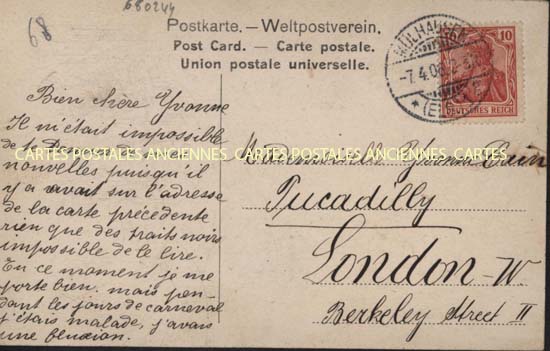 680244
68
Postkarte. – Weltpostverein.
Post Card. – Carte postale.
Union postale universelle.
7.4.08
10
DEUTSCHES REICH
Bien chère Yvonne
Il m'était impossible
de
nouvelles puisqu'il
y a avait sur l'adresse
de la carte précédente
rien que des traits noirs
impossible de le lire.
En ce moment je me
porte bien, mais pen-
dant les jours de carneval
j'étais malade, j'avais
une fluxion.
CARTES POSTALES ANCIENNES
CARTES POSTALES ANCIENNES
CARTES POSTALES ANCIENNES
Mademoiselle Yvonne
Picadilly
London - W
Berkeley Street II